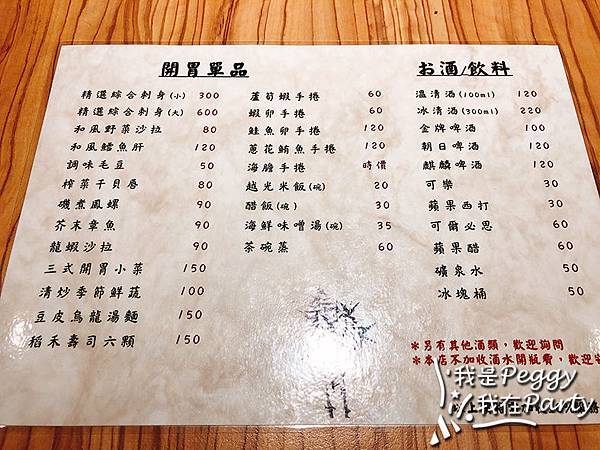 開胃單品
精選綜合刺身(小) 300
精選綜合刺身(大) 600
和風野菜沙拉 80
和風鱈魚肝 120
調味毛豆 50
榨菜干貝唇 80
磯煮鳳螺 90
芥末章魚 90
龍蝦沙拉 90
三式開胃小菜 150
清炒季節鮮蔬 100
豆皮烏龍湯麵 150
稻禾壽司六顆 150
蘆筍蝦手捲 60
蝦卵手捲 60
鮭魚卵手捲 120
蔥花鮪魚手捲 120
海膽手捲 時價
越光米飯(碗) 20
醋飯(碗) 30
海鮮味噌湯(碗) 35
茶碗蒸 60
お酒/飲料
溫清酒(100ml) 120
冰清酒(300ml) 220
金牌啤酒 100
朝日啤酒 120
麒麟啤酒 120
可樂 30
蘋果西打 30
可爾必思 60
蘋果醋 60
礦泉水 50
冰塊桶 50
*另有其他酒類,歡迎詢問
*本店不加收酒水開瓶費,歡迎
以上
我是Peggy
我在Party